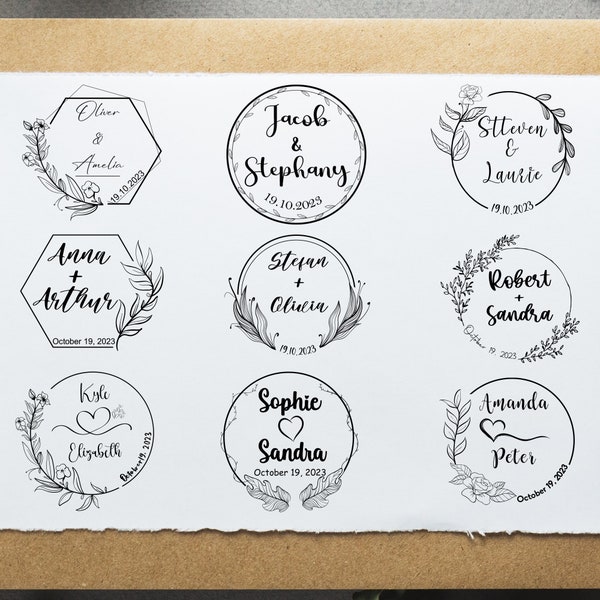 Oliver
&
Amelia
19.10.2023
Jacob
&
Stephany
19.10.2023
Stteven
&
Laurie
19.10.2023
Anna
+
Arthur
October 19, 2023
Stefan
+
Olivia
19.10.2023
Robert
+
Sandra
October 19, 2023
Kyle
Elizabith
October 19, 2023
Sophie
Sandra
October 19, 2023
Amanda
Peter
October 19, 2023